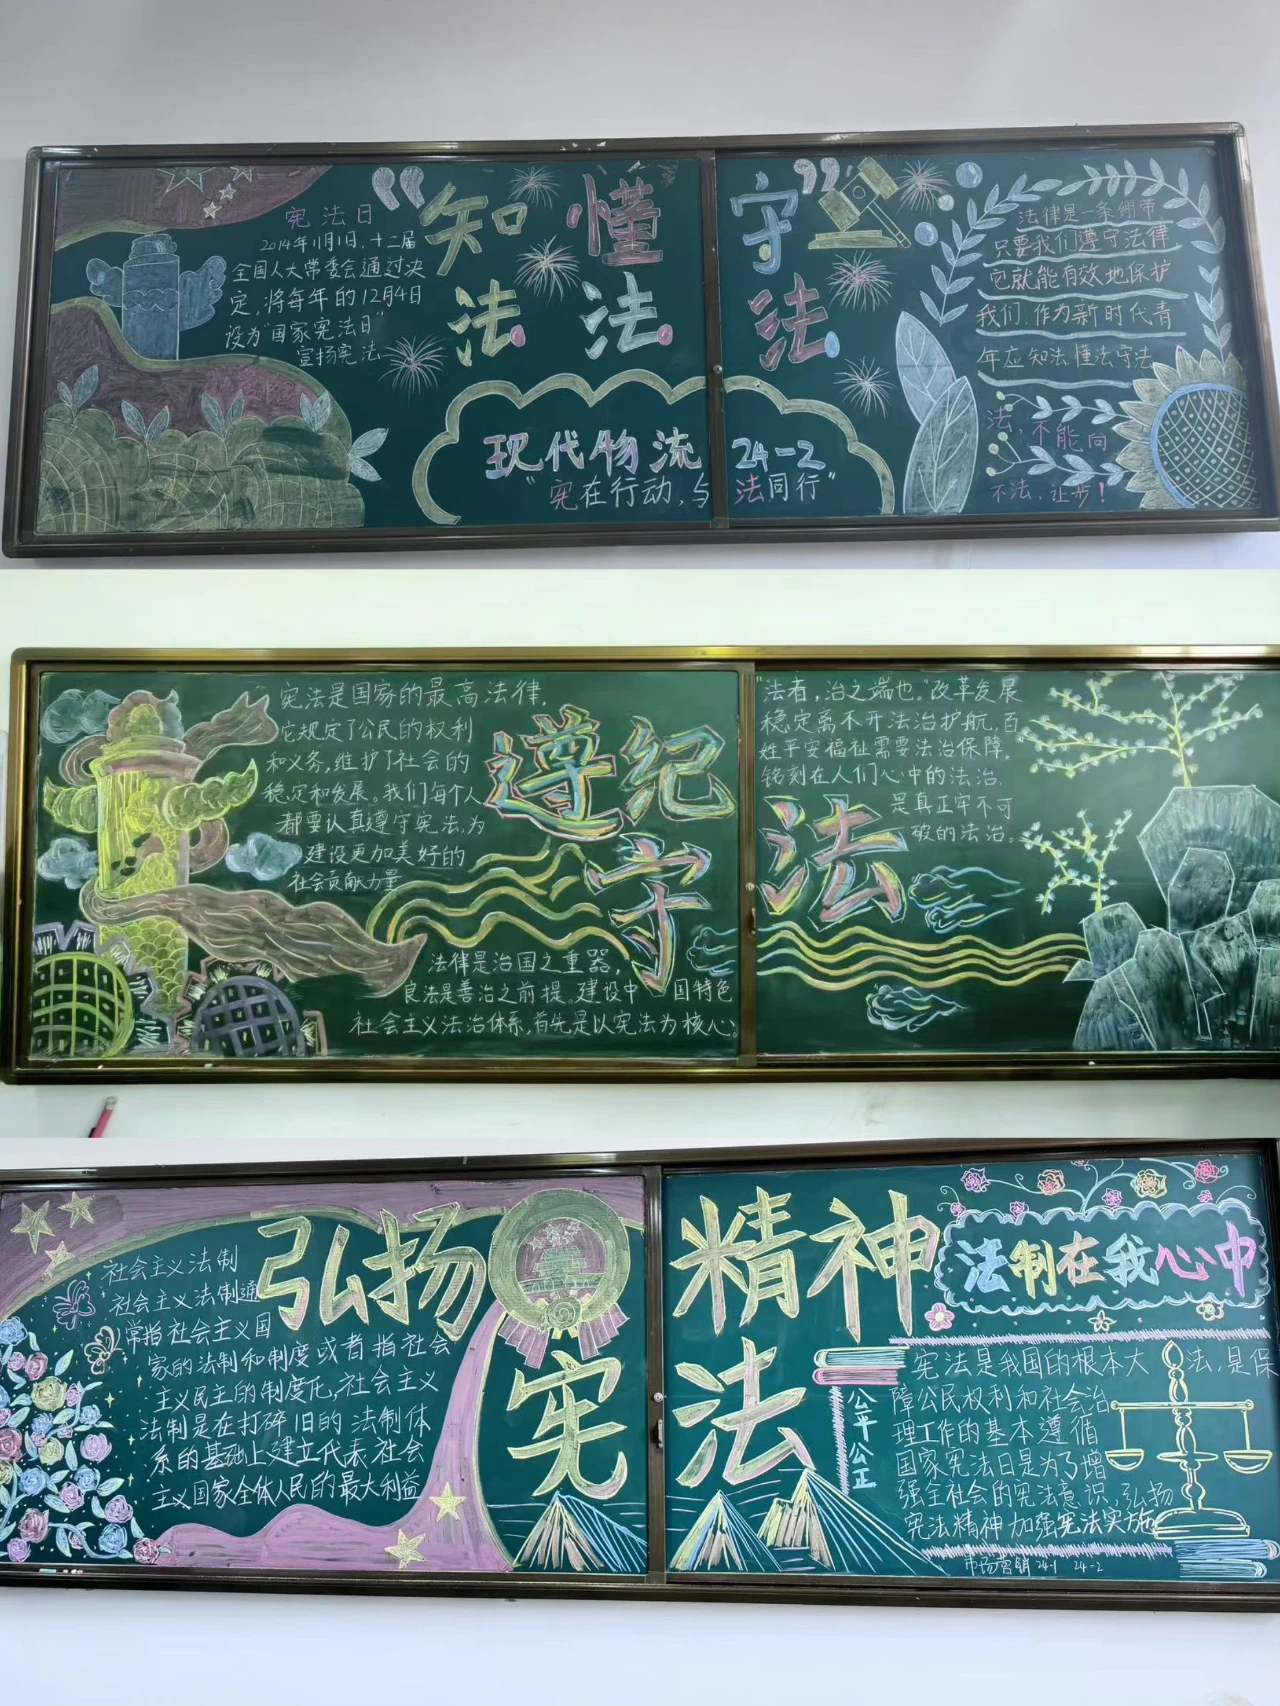 宪法日
2014年11月1日,十二届
全国人大常委会通过决
定,将每年的12月4日
设为"国家宪法日"
宣扬宪法
“知法 懂法 守法”
现代物流 24-2
"宪在行动,与法同行"
法律是一条绷带
只要我们遵守法律
它就能有效地保护
我们,作为新时代青
年应知法懂法守法
法,不能向
不法,让步!
宪法是国家的最高法律,
它规定了公民的权利
和义务,维护了社会的
稳定和发展。我们每个人
都要认真遵守宪法,为
建设更加美好的
社会贡献力量
遵纪
守法
法律是治国之重器,
良法是善治之前提。建设中国特色
社会主义法治体系,首先是以宪法为核心
"法者,治之端也。"改革发展
稳定离不开法治护航,百
姓平安福祉需要法治保障,
铭刻在人们心中的法治,
是真正牢不可
破的法治。
弘扬
宪法
精神
社会主义法制
社会主义法制通
常指社会主义国
家的法制和制度或者指社会
主义民主的制度化,社会主义
法制是在打碎旧的法制体
系的基础上建立代表社会
主义国家全体人民的最大利益
法制在我心中
公平公正
宪法是我国的根本大法,是保
障公民权利和社会治
理工作的基本遵循
国家宪法日是为了增
强全社会的宪法意识,弘扬
宪法精神加强宪法实施
市场营销24-1 24-2